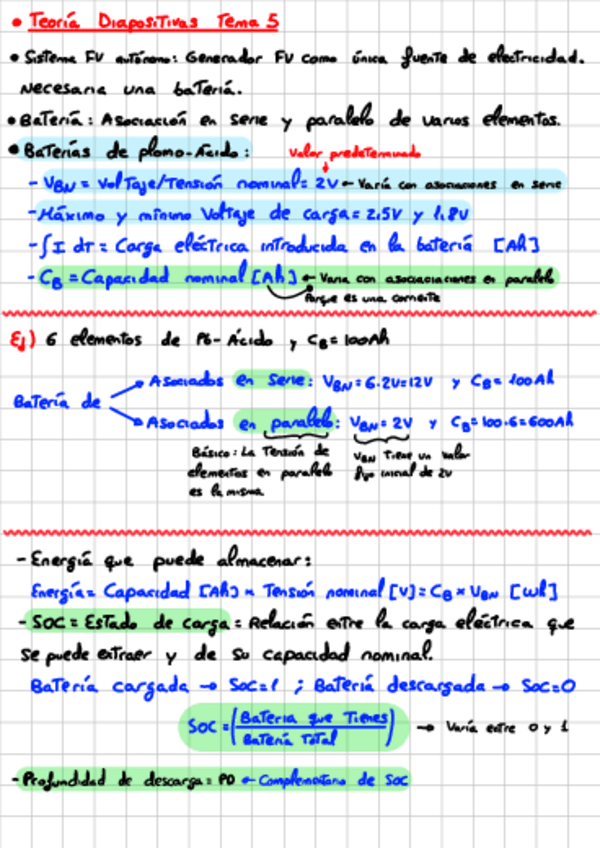 • Teoría Diapositivas Tema 5
• Sistema FV autónomo: Generador FV como única fuente de electricidad.
Necesaria una batería.
• Batería: Asociación en serie y paralelo de varios elementos.
• Baterías de plomo-Ácido:
Valor predeterminado
- VBN = Voltaje/Tensión nominal = 2V ← Varía con asociaciones en serie
- Máximo y mínimo Voltaje de carga = 2,5V y 1,8V
- ∫I dT = Carga eléctrica introducida en la batería [Ah]
- CB = Capacidad nominal [Ah] ← Varía con asociaciaciones en paralelo
Porque es una corriente
Ej) 6 elementos de Pb-Ácido y CB = 100Ah
Batería de
Asociados en serie: VBN = 6·2V = 12V y CB = 100Ah
Asociados en paralelo: VBN = 2V y CB = 100·6 = 600Ah
Básico: La Tensión de
elementos en paralelo
es la misma
VBN Tiene un valor
fijo inicial de 2V
- Energía que puede almacenar:
Energía = Capacidad [Ah] × Tensión nominal [V] = CB × VBN [Wh]
- SOC = Estado de carga = Relación entre la carga eléctrica que
se puede extraer y de su capacidad nominal.
Batería cargada → SOC=1 ; Batería descargada → SOC=0
SOC = (Batería que Tienes / Batería Total) → Varía entre 0 y 1
- Profundidad de descarga = PD ← Complementario de SOC